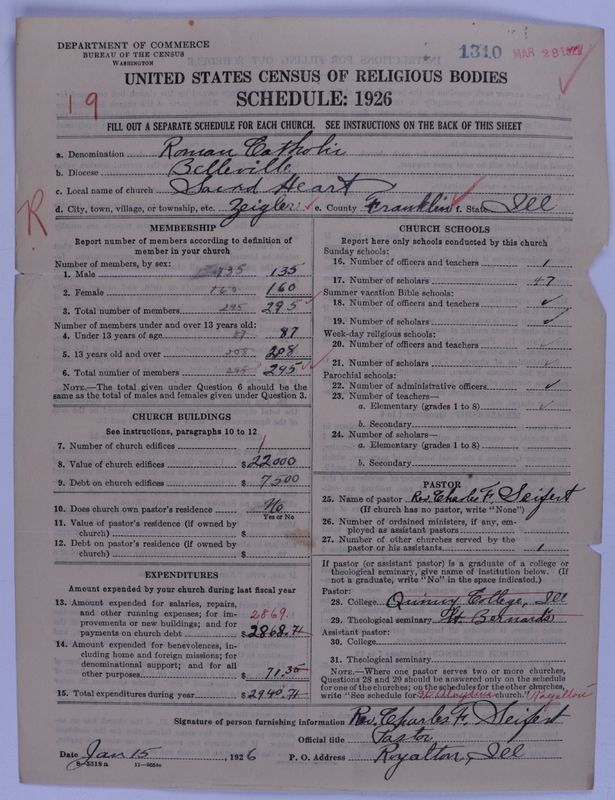 DEPARTMENT OF COMMERCE
BUREAU OF THE CENSUS
WASHINGTON
1310 MAR 23
UNITED STATES CENSUS OF RELIGIOUS BODIES
SCHEDULE: 1926
19
FILL OUT A SEPARATE SCHEDULE FOR EACH CHURCH. SEE INSTRUCTIONS ON THE BACK OF THIS SHEET
a. Denomination Roman Catholic
b. Diocese Belleville
c. Local name of church Sacred Heart
d. City, town, village, or township, etc. Zeigler e. County Franklin f. State Ill
R
MEMBERSHIP
Report number of members according to definition of
member in your church
Number of members, by sex:
1. Male 135 135
2. Female 160 160
3. Total number of members 295 295
Number of members under and over 13 years old:
4. Under 13 years of age 87 87
5. 13 years old and over 208 208
6. Total number of members 295 295
NOTE.—The total given under Question 6 should be
same as the total of males and females given under Question 3.
CHURCH BUILDINGS
See instructions, paragraphs 10 to 12
7. Number of church edifices 1
8. Value of church edifices $22000
9. Debt on church edifices $7500
10. Does church own pastor's residence No
Yes or No
11. Value of pastor's residence (if owned by
church) $
12. Debt on pastor's residence (if owned by
church) $
EXPENDITURES
Amount expended by your church during last fiscal year
13. Amount expended for salaries, repairs,
and other running expenses; for im-
provements or new buildings; and for 2869.
payments on church debt $2868.71
14. Amount expended for benevolences, in-
cluding home and foreign missions; for
denominational support; and for all
other purposes $71.35
15. Total expenditures during year $2940.71
CHURCH SCHOOLS
Report here only schools conducted by this church
Sunday schools:
16. Number of officers and teachers 1
17. Number of scholars 47
Summer vacation Bible schools:
18. Number of officers and teachers ✓
19. Number of scholars ✓
Week-day religious schools:
20. Number of officers and teachers ✓
21. Number of scholars ✓
Parochial schools:
22. Number of administrative officers ✓
23. Number of teachers—
a. Elementary (grades 1 to 8) ✓
b. Secondary
24. Number of scholars—
a. Elementary (grades 1 to 8)
b. Secondary
PASTOR
25. Name of pastor Rev. Charles F. Seifert
(If church has no pastor, write "None")
26. Number of ordained ministers, if any, em-
ployed as assistant pastors
27. Number of other churches served by the
pastor or his assistants 1
If pastor (or assistant pastor) is a graduate of a college or
theological seminary, give name of institution below. (If
not a graduate, write "No" in the space indicated.)
Pastor:
28. College Quincy College, Ill
29. Theological seminary St. Bernards
Assistant pastor:
30. College
31. Theological seminary
NOTE.—Where one pastor serves two or more churches,
Questions 28 and 29 should be answered only on the schedule
for one of the churches; on the schedules for the other churches,
write "See schedule for St. Aloysius church." Royalton
Signature of person furnishing information Rev. Charles F. Seifert
Official title Pastor
Date Jan 15, 1926 P. O. Address Royalton, Ill